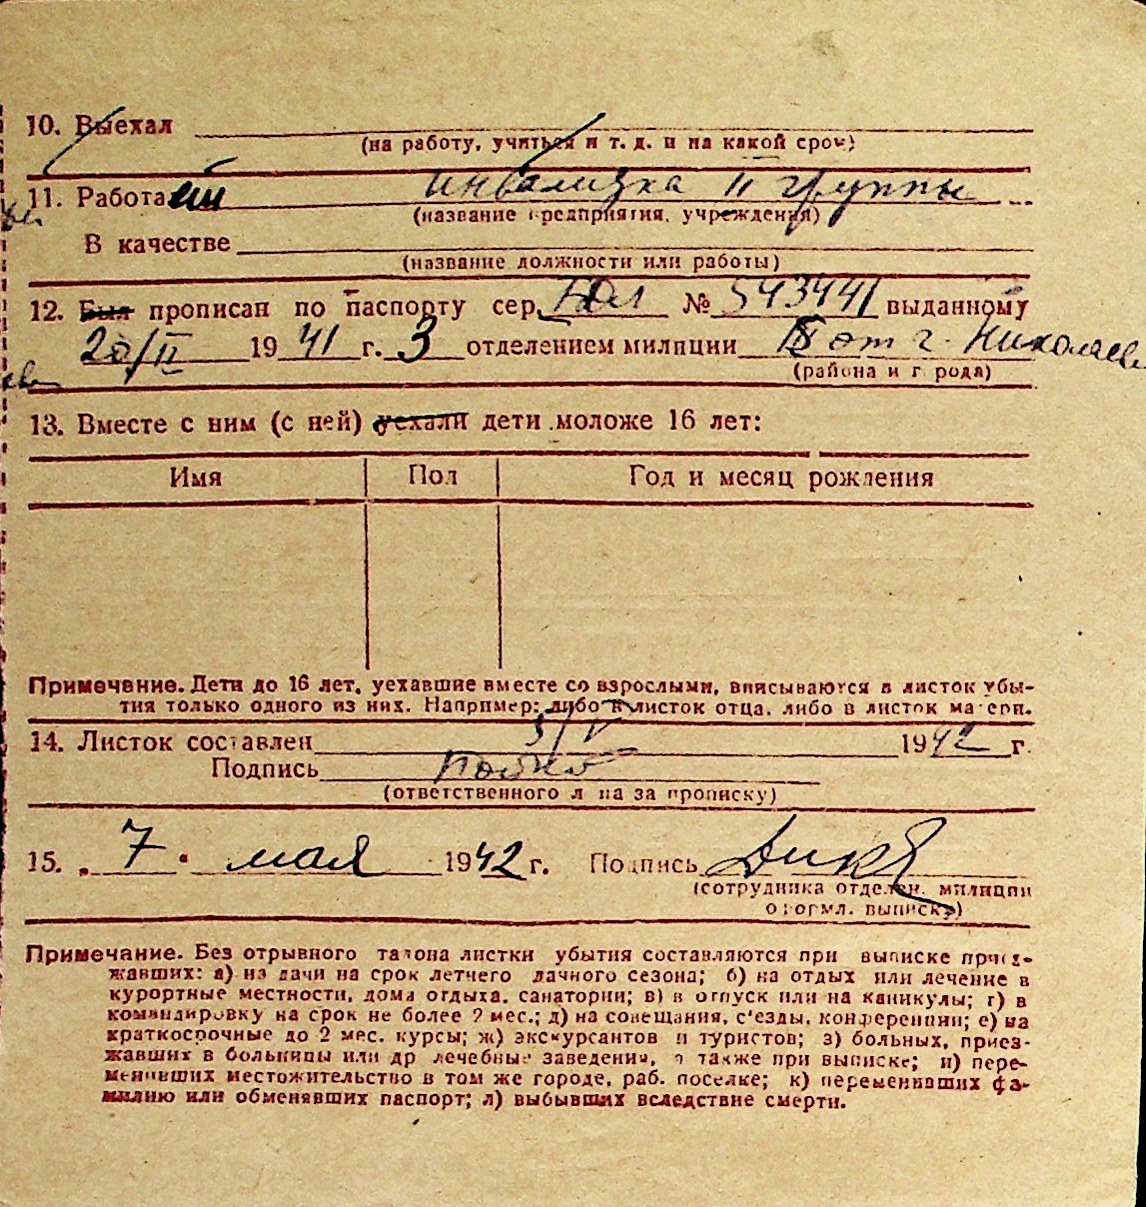 10. Выехал
(на работу, учиться и т. д. и на какой срок)
11. Работает инвалидка II группы
(название предприятия, учреждения)
В качестве
(название должности или работы)
12. Был прописан по паспорту сер. № 543441 выданному
20/II 1941 г. 3 отделением милиции от г. Николаев
(района и города)
13. Вместе с ним (с ней) уехали дети моложе 16 лет:
Имя Пол Год и месяц рождения
Примечание. Дети до 16 лет, уехавшие вместе со взрослыми, вписываются в листок убы-
тия только одного из них. Например: либо в листок отца, либо в листок матери.
14. Листок составлен 5/V 1942 г.
Подпись
(ответственного лица за прописку)
15. „7" мая 1942 г. Подпись
(сотрудника отделен. милиции
оформл. выписку)
Примечание. Без отрывного талона листки убытия составляются при выписке приез-
жавших: а) на дачи на срок летнего дачного сезона; б) на отдых или лечение в
курортные местности, дома отдыха, санатории; в) в отпуск или на каникулы; г) в
командировку на срок не более 2 мес.; д) на совещания, с'езды, конференции; е) на
краткосрочные до 2 мес. курсы; ж) экскурсантов и туристов; з) больных, приез-
жавших в больницы или др лечебные заведения, а также при выписке; и) пере-
менивших местожительство в том же городе, раб. поселке; к) переменивших фа-
милию или обменявших паспорт; л) выбывших вследствие смерти.